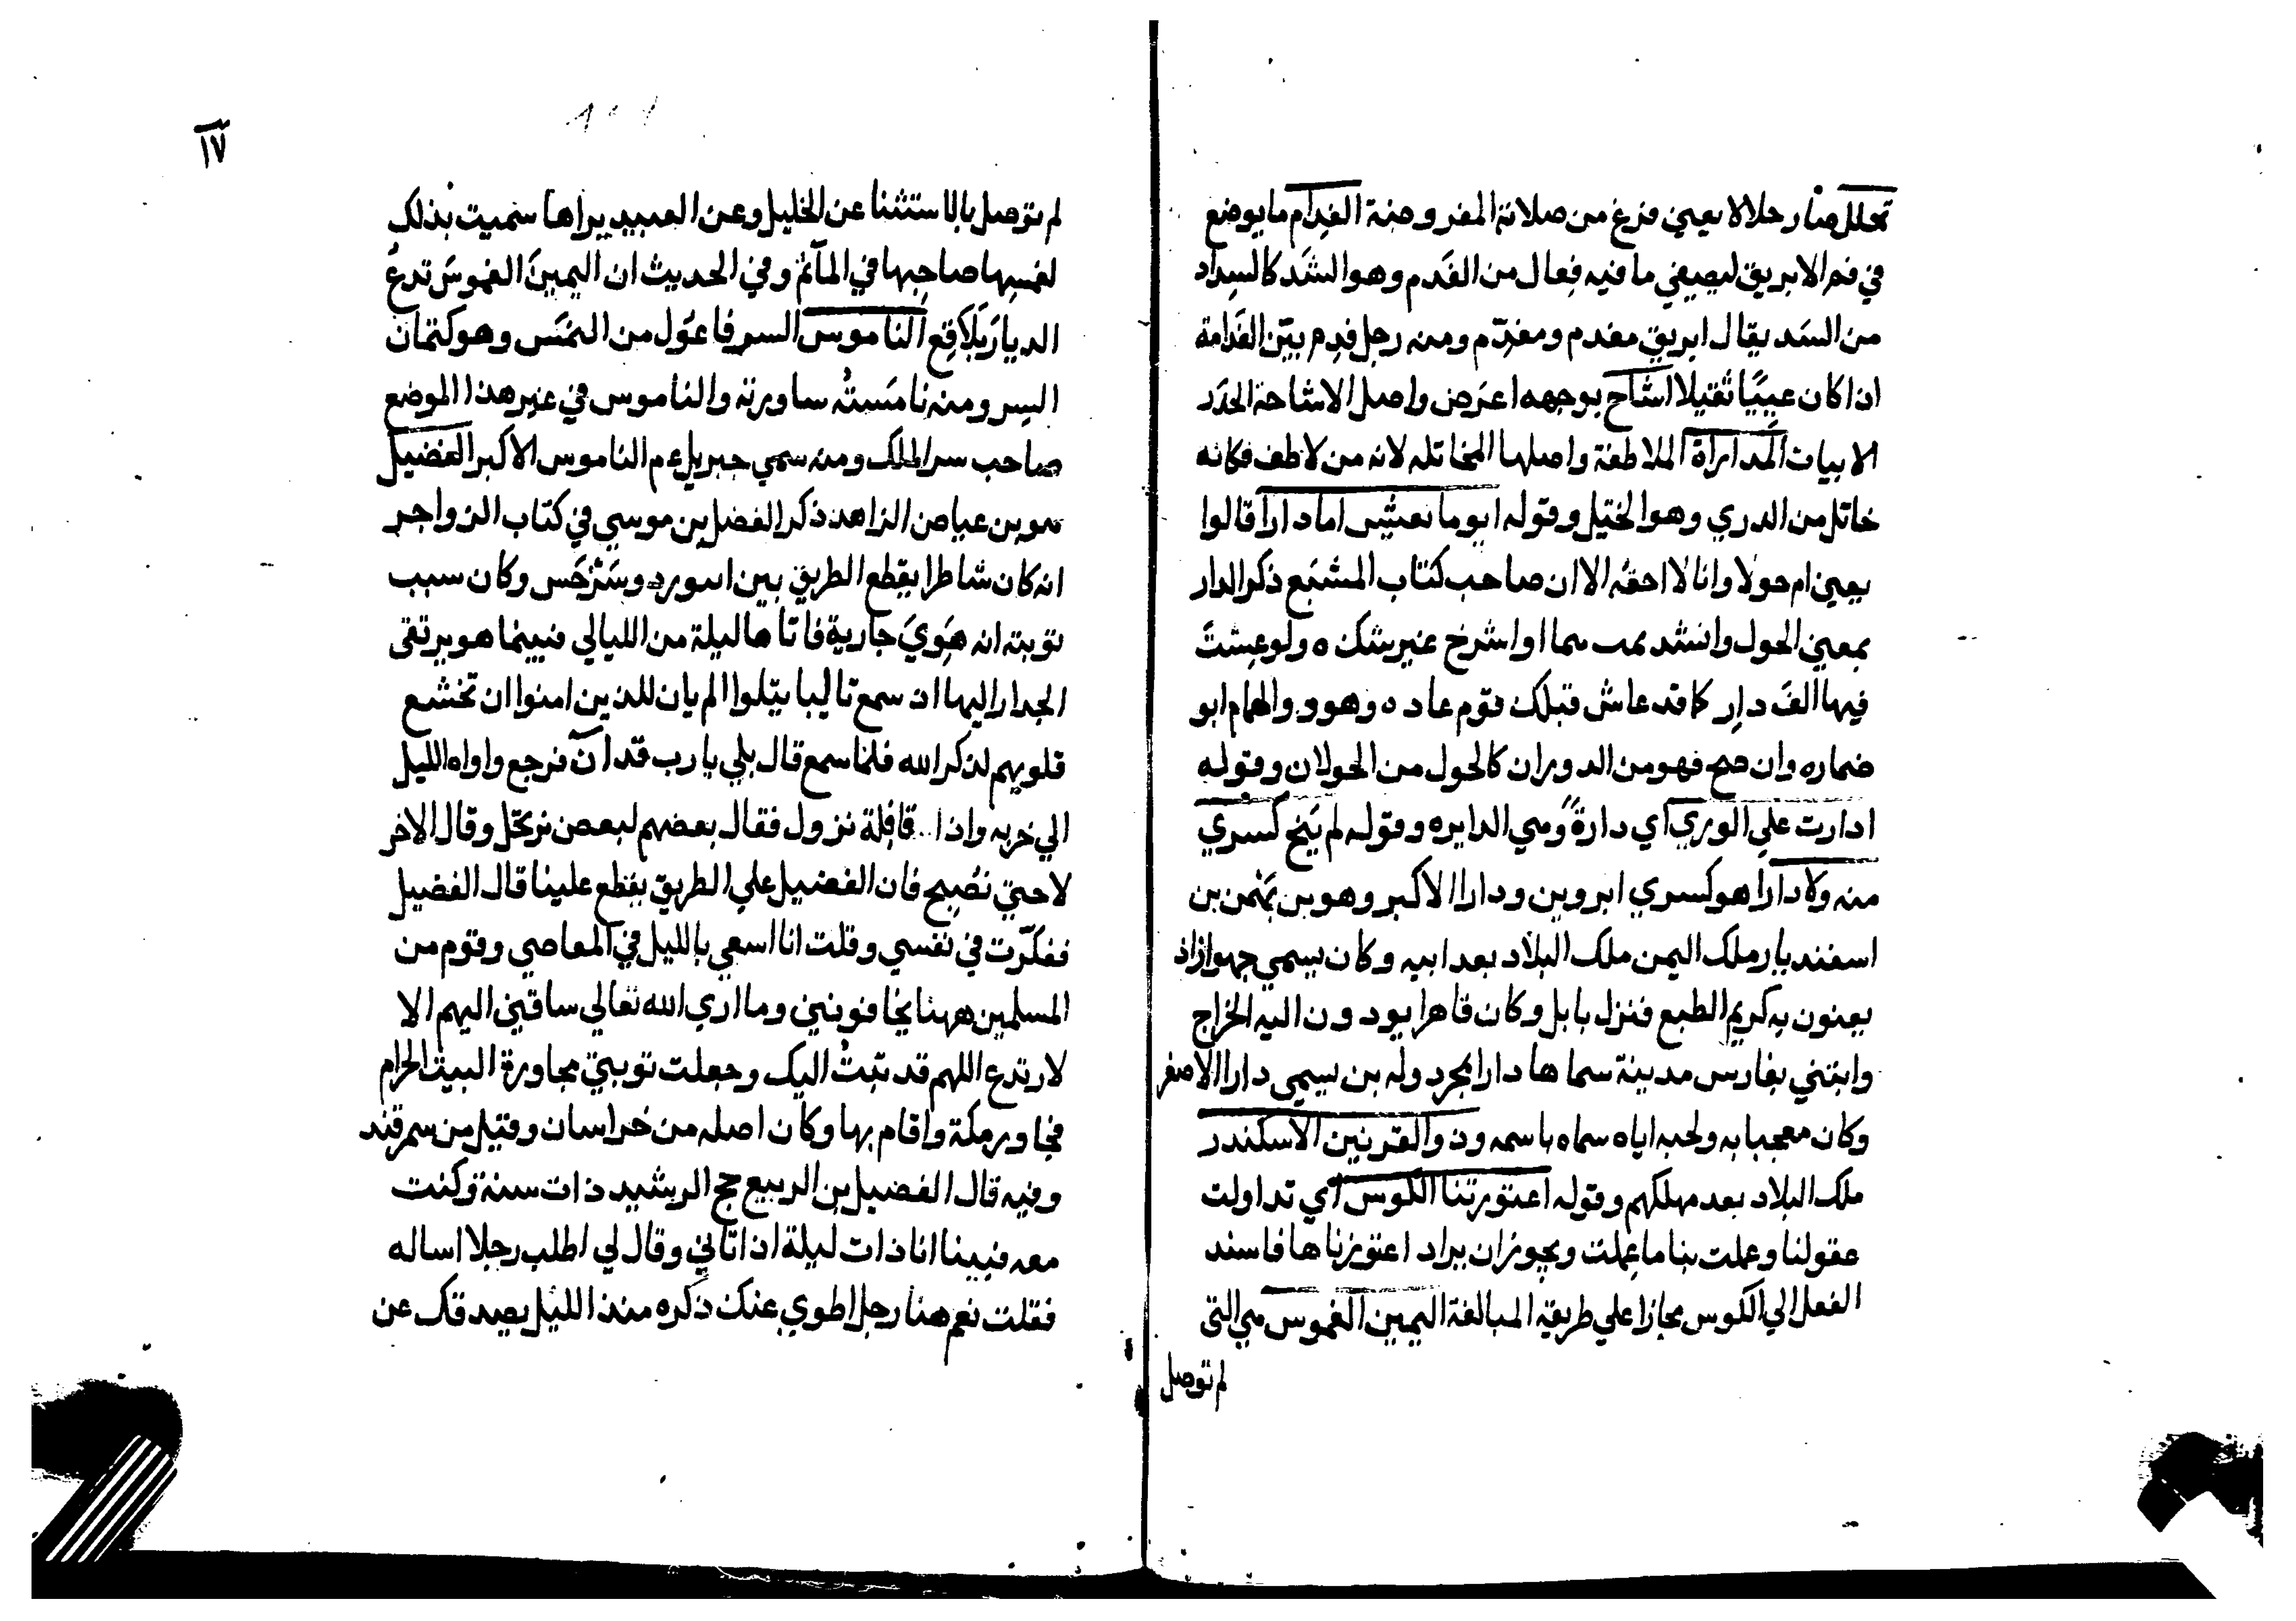 تحلل منا رجلا لا يعني فرغ من صلاته المفروضة الفدام ما يوضع
في فم الابريق ليصفي ما فيه فِعال من الفَدم وهو الشد كالسِداد
من السَد يقال ابريق مفدم ومفدّم ومنه رجل فدم بيّن الفَدامة
اذا كان عييًا ثقيلا اشاح بوجهه اعرض واصل الاشاحة الحذر
الابيات المداراة الملاطفة واصلها المخاتله لانه من لاطف فكانه
خاتل من الدري وهو الختل وقوله ابوما تعيش اما دارا قالوا
يعني ام حولا وانا لا احقه الا ان صاحب كتاب المشبع ذكر الدار
بمعني الحول وانشد اواشرخ غير شك ه ولو عشت
فيها الف دار كما قد عاش قبلك قوم عاد ه وهو والهام ابو
ضماره وان صح فهو من الدوران كالحول من الحولان وقوله
ادارت علي الوري اي دارة وهي الدايره وقوله لم ينج كسري
منه ولا دارا هو كسري ابرويز ودارا الاكبر وهو بن بهمن بن
اسفنديار ملك اليمن ملك البلاد بعد ابيه وكان يسمي جهرازاد
يعنون به كريم الطبع فنزل بابل وكان قاهرا يودون اليه الخراج
وابتني بفارس مدينة سماها دارابجرد وله بن يسمي دارا الاصغر
وكان معجبا به ولحبه اياه سماه باسمه وذو القرنين الاسكندر
ملك البلاد بعد مهلكهم وقوله اعتورتنا الكوس اي تداولت
عقولنا وعملت بنا ما عملت ويجوز ان يراد اعتورناها فاسند
الفعل الي الكوس مجازا علي طريقه المبالغة اليمين الغموس هي التي
لم توصل
١٧
لم توصل بالاستثنا عن الخليل وعن العبيد يراها سميت بذلك
لغمسها صاحبها في المآثم وفي الحديث ان اليمينَ الغموسَ تدعُ
الديارَ بَلَاقِع الناموس السر فاعول من النمس وهو كتمان
السر ومنه نامَستُه ساورته والناموس في غير هذا الموضع
صاحب سر الملك ومنه سمي جبريل ءم الناموس الاكبر الفضيل
هو بن عياض الزاهد ذكر الفضل بن موسي في كتاب الزواجر
انه كان شاطرا يقطع الطريق بين ابيورد وسَرْخَس وكان سبب
توبته انه هَوِيَ جارية فاتاها ليلة من الليالي فبينما هو يرتقى
الجدار اليها اذ سمع تاليا يتلوا الم يان للذين امنوا ان تخشع
قلوبهم لذكر الله فلما سمع قال بلي يا رب قد آن فرجع واواه الليل
الي خربه واذا قافلة نزول فقال بعضهم لبعض نرتحل وقال الاخر
لا حتي نصبح فان الفضيل علي الطريق يقطع علينا قال الفضيل
ففكّرت في نفسي وقلت انا اسعي بالليل في المعاصي وقوم من
المسلمين ههنا يخافونني وما اري الله تعالي ساقني اليهم الا
لارتدع اللهم قد تبتُ اليك وجعلت توبتي مجاورة البيت الحرام
فجاور مكة واقام بها وكان اصله من خراسان وقيل من سمرقند
وفيه قال الفضيل بن الربيع حج الرشيد ذات سنة وكنت
معه فبينا انا ذات ليلة اذ اتاني وقال لي اطلب رجلا اساله
فقلت نعم هنا رجل اطوي عنك ذكره منذ الليل يصدقك عن